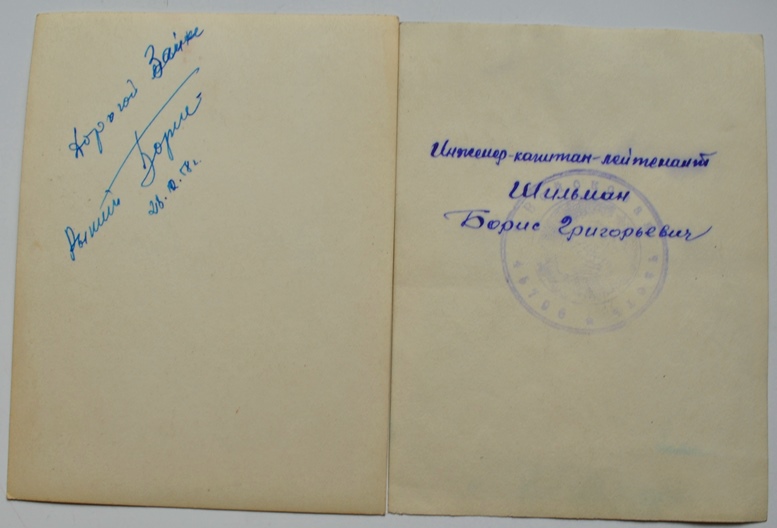 Дорогой Зайке
Рыжий Борис
Инженер-капитан-лейтенант
Шильман
Борис Григорьевич